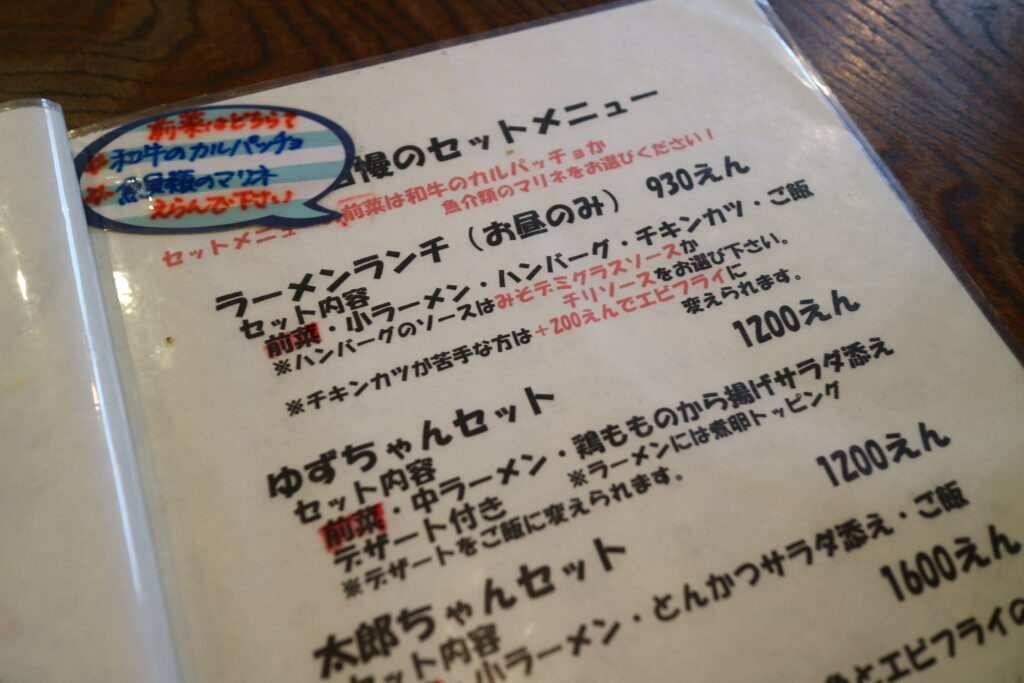 前菜はどちらで
和牛のカルパッチョ
魚貝類のマリネ
えらんで下さい
慢のセットメニュー
セットメニュー 前菜は和牛のカルパッチョか
魚介類のマリネをお選びください!
ラーメンランチ(お昼のみ) 930えん
セット内容
前菜・小ラーメン・ハンバーグ・チキンカツ・ご飯
※ハンバーグのソースはみそデミグラスソースか
チリソースをお選び下さい。
※チキンカツが苦手な方は+200えんでエビフライに
変えられます。
ゆずちゃんセット 1200えん
セット内容
前菜・中ラーメン・鶏もものから揚げサラダ添え
デザート付き ※ラーメンには煮卵トッピング
※デザートをご飯に変えられます。
太郎ちゃんセット 1200えん
セット内容
小ラーメン・とんかつサラダ添え・ご飯
1600えん
とエビフライの